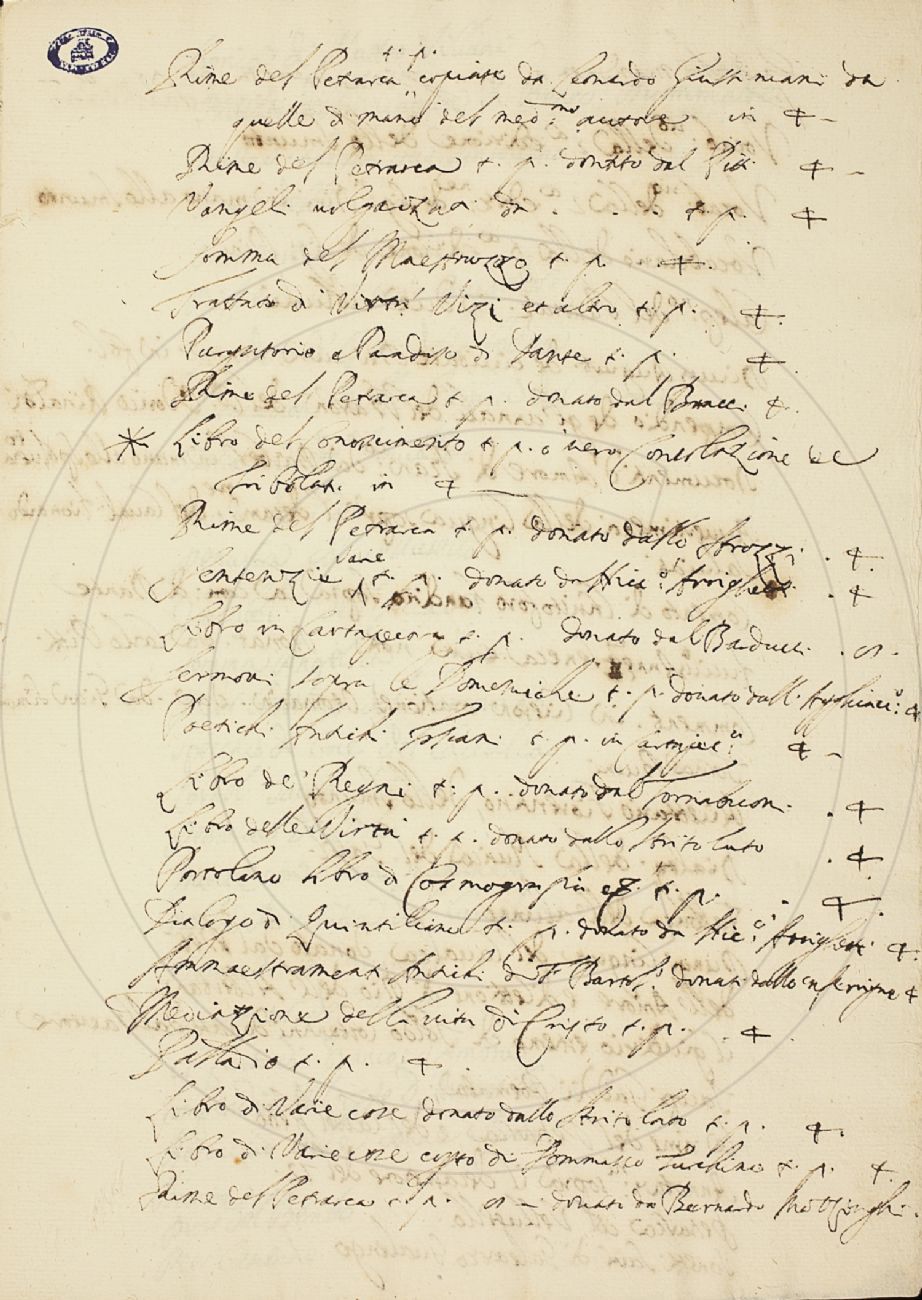 Rime del Petrarca t. p. copiate da Leonardo Giustiniani da
quelle di mano del med.mo autore in
Rime del Petrarca t. p. donato dal Pitti
Vangeli volgarizzati da . . . t. p.
Somma del Maestruzzo t. p.
Trattato di Virtù Vizi et altro t. p.
Purgatorio e Paradiso di Dante t. p.
Rime del Petrarca t. p. donato dal Bracci
* Libro del Conoscimento t. p. o vero Consolazione de
Tribolati in
Rime del Petrarca t. p. donato dallo Strozzi
Sentenzie varie t. p. donato da Hier.o Arrighetti
Libro in Cartapecora t. p. donato dal Barducci
Sermoni sopra le Domeniche t. p. donato dall'
Poetichi Antichi Toscani t. p. in
Libro de' Regni t. p. donato dal Tornabuoni
Libro delle Virtù t. p. donato dallo Stritolato
Portolano libro di Cosmografia t. p.
Dialogo di Quintiliano t. p. donato da Hie.o Arrighetti
Ammaestramenti Antichi di F. Bartol.o donati dallo Inferigno
Meditazione della vita di Cristo t. p.
Palladio t. p.
Libro di Varie cose donato dallo Stritolato t. p.
Libro di Varie cose di Tommaso t. p.
Rime del Petrarca t. p. donati da Bernardo